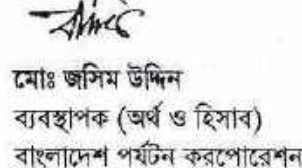 মোঃ জসিম উদ্দিন
ব্যবস্থাপক (অর্থ ও হিসাব)
বাংলাদেশ পর্যটন করপোরেশন